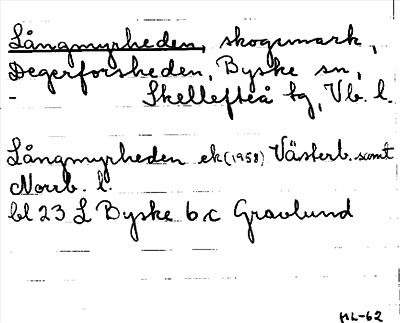 Långmyrheden, skogsmark,
Degerforsheden, Byske sn,
- Skellefteå tg, Vb. l.
Långmyrheden ek (1958) Västerb. samt
Norrb. l.
bl 23 L Byske 6c Gravlund
HL-62